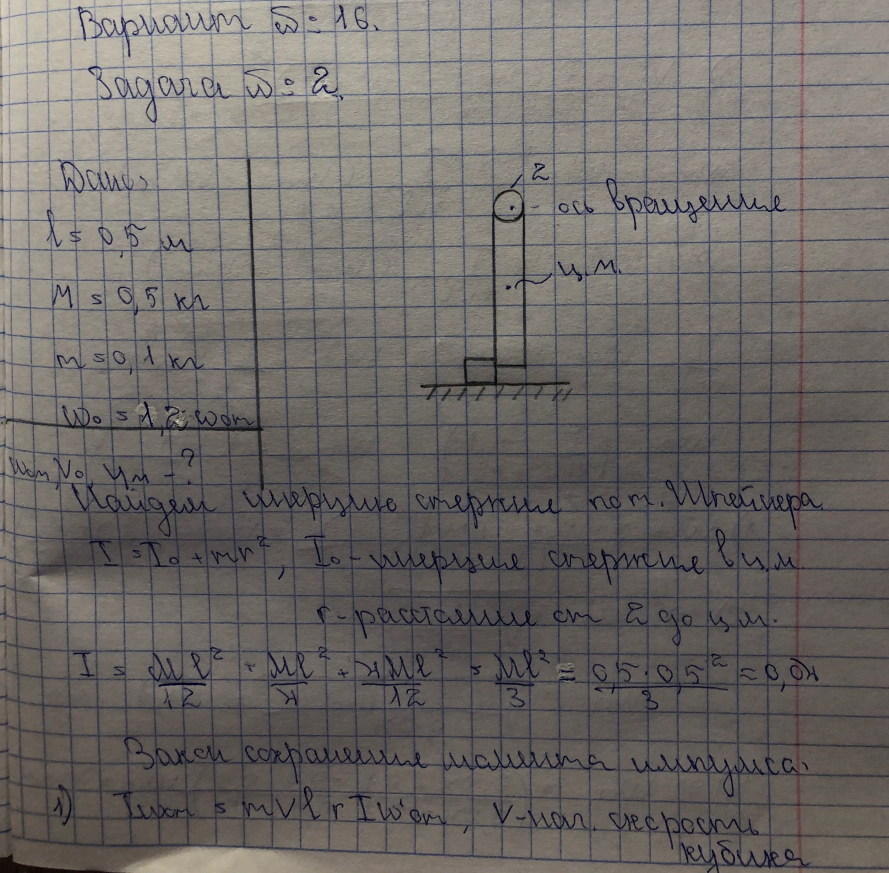 Вариант №: 16.
Задача №: 2.
Дано:
l = 0,5 м
M = 0,5 кг
m = 0,1 кг
ω₀ = 1,2 ωоm
ωom, V₀, Цм - ?
2
ось вращения
ц.м.
Найдем инерцию стержня по т. Штейнера
I = I₀ + mr², I₀ - инерция стержня в ц.м.
r - расстояние от 2 до ц.м.
I = Ml²/12 + Ml²/4 + 4Ml²/12 = Ml²/3 = 0,5·0,5²/3 = 0,04
Закон сохранения момента импулса:
1) Iωom = mVl + Iω'om, V - нач. скорость
кубика